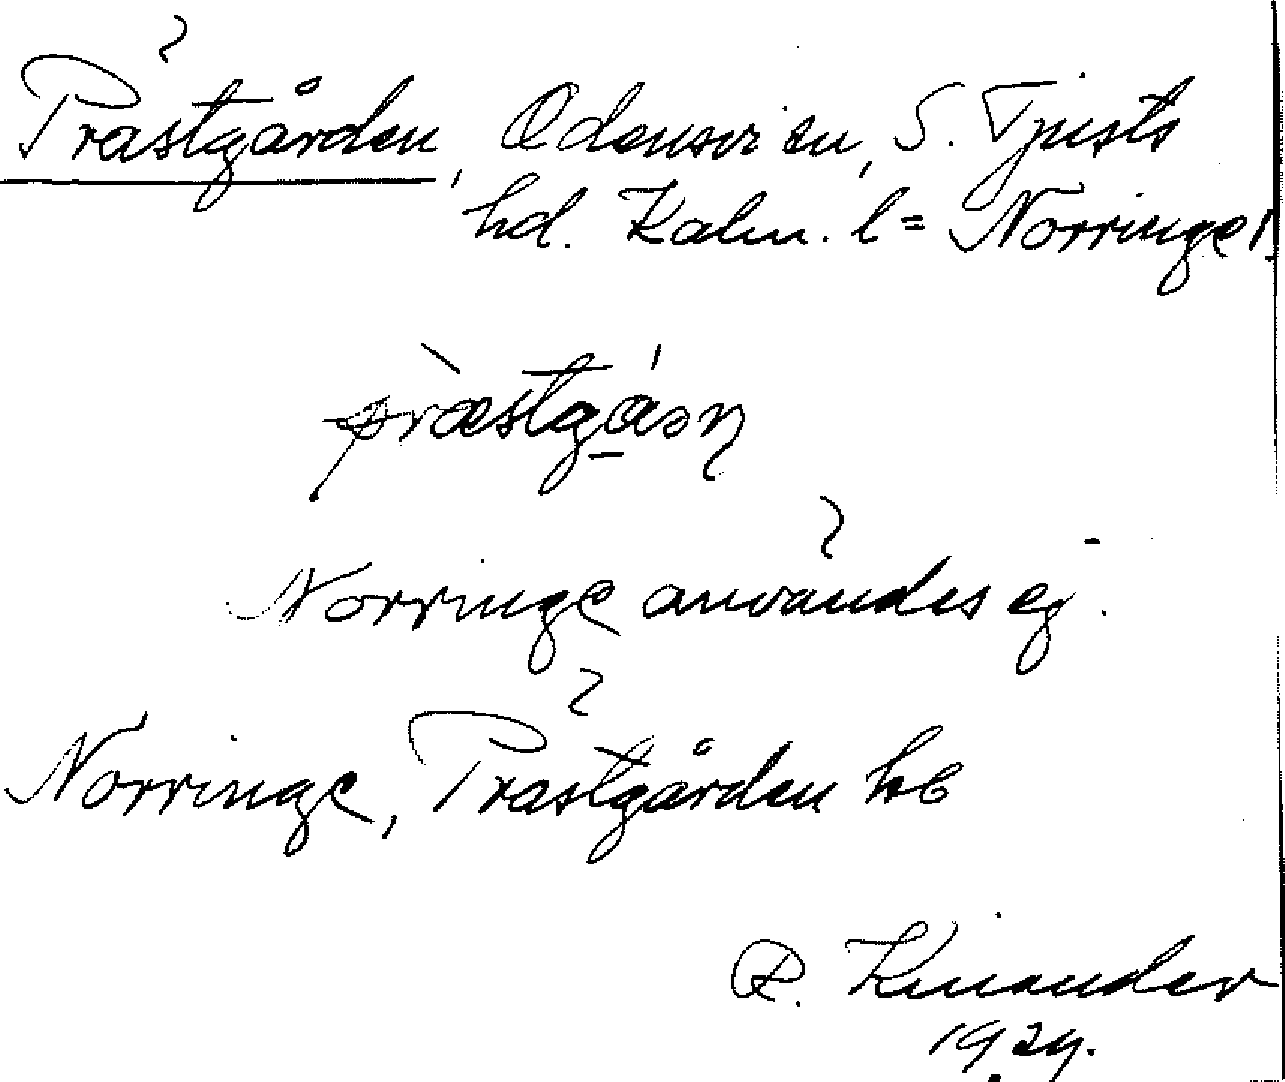 Prästgården, Odensvi sn, S. Tjusts
hd. Kalm. l = Norringe!
præstgáan
Norringe användes ej.
Norringe, Prästgården hb
R. Kinander
1929.